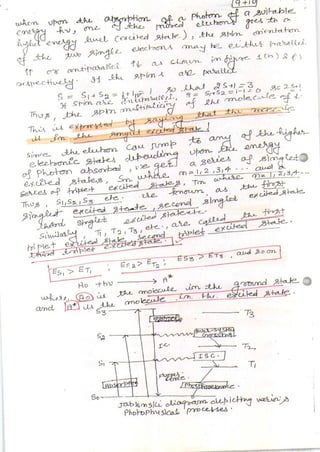 9+19
when upon the absorption of a Photon of a suitable
energy hν, one of the paired electrons goes to a
higher energy level (excited state), the spin orientation
of the two single electrons may be either parallel
or antiparallel as shown in figure 1(n) 2(
respectively. If the spins are parallel
S = S1+S2 = so that 2S+1=3
If spin are antiparallel, S = S1+S2 so 2S+1
Thus, the spin multiplicity of the molecules is 1.
This is expressed by saying that the molecule
is in the singlet excited state.
Since the electron can jump to any of the higher
electronic states depending upon the energy
of Photon absorbed, we get a series of singlet
excited states, Sn where n=1,2,3,4... and a
series of triplet excited states, Tn where n=1,2,3,4...
Thus, S1,S2,S3 etc. are known as the first
singlet excited state, second singlet excited state
third singlet excited state etc.
Similarly, T1, T2, T3, etc., are called the first
triplet excited state, second triplet excited state,
third triplet excited state.
ES1 > ET1 ; ES2 > ET2 ; ES3 > ET3, and so on
A0 + hν → A*
where A0 is the molecule in the ground state
and A* is the molecule in the excited state.
S3 T3
S2
IC T2
S1 ISC
T1
Phosphorescence
S0
Jablonski diagram depicting various
Photophysical processes.